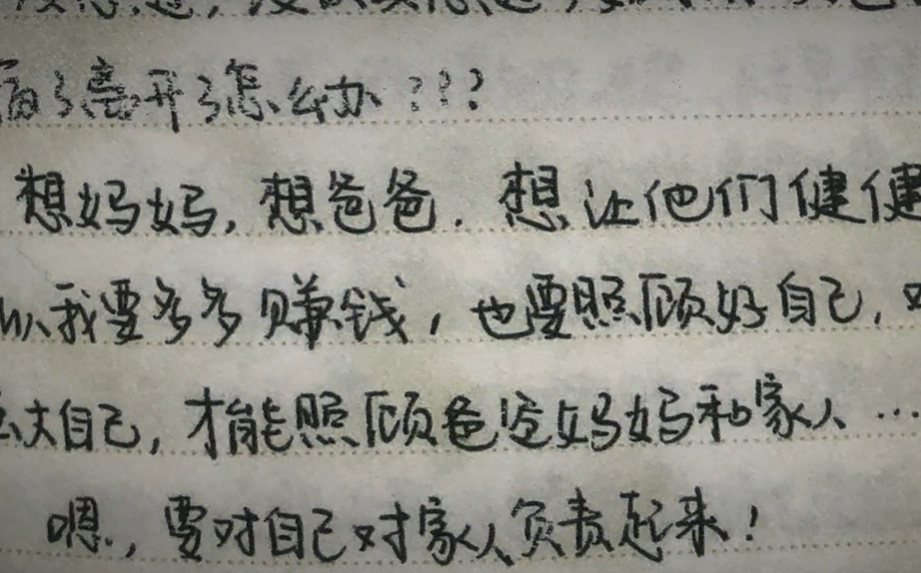 了离开了怎么办???
想妈妈,想爸爸.想让他们健健
以我要多多赚钱,也要照顾好自己,
大自己,才能照顾爸爸妈妈和家人…
嗯,要对自己对家人负责起来!